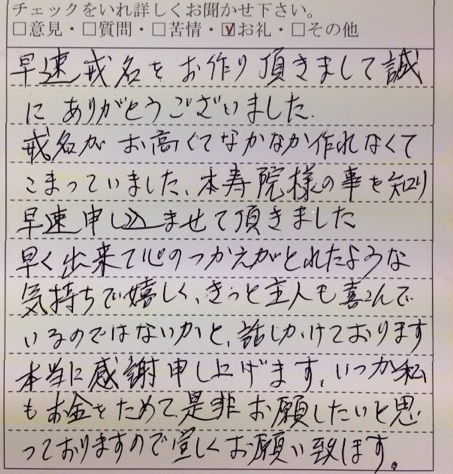 チェックをいれ詳しくお聞かせ下さい。
□意見・□質問・□苦情・☑お礼・□その他
早速戒名をお作り頂きまして誠
にありがとうございました.
戒名が お高くてなかなか作れなくて
こまっていました、本寿院様の事を知り
早速申し込ませて頂きました
早く出来て心のつかえがとれたような
気持ちで嬉しく、きっと主人も喜んで
いるのではないかと、話しかけております
本当に感謝申し上げます、いつか私
もお金をためて是非お願したいと思
っておりますので宜しくお願い致します。